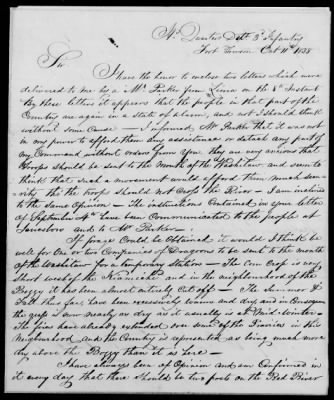 Hd Quarters Detht 3d Infantry
Fort Towson Oct 11th 1838
Sir
I have the honor to enclose two letters which were
delivered to me by a Mr Parker from Lima on the 8th Instant
By these letters it appears that the people in that part of the
Country are again in a state of alarm, and not I should think
without some Cause — I informed Mr Parker that it was not
in my power to afford them any assistance or detach any part of
my Command without orders from you, they are very anxious that
Troops should be sent to the mouth of the Washitaw and seem to
think that such a movement would afford them much secu-
rity tho' the troops should not cross the River — I am inclined
to the same Opinion — The instructions contained in your letter
of September 4th have been Communicated to the people at
Janesboro and to Mr Parker.
If forage Could be obtained it would I think be
well for One or two Companies of Dragoons to be sent to the mouth
of the Washitaw as a temporary Station — The Corn Crop is very
Short west of the Kiamichi and in the neighbourhood of the
Boggy it has been almost entirely Cut off — The Summer &
Fall thus far, have been excessively warm and dry and in Consequence
the grass is now nearly as dry as it usually is at Mid-Winter —
The fires have already extended over some of the Prairies in this
Neighbourhood and the Country is represented as being much more
dry above the Boggy than it is here —
I have always been of Opinion and am Confirmed in
it every day that there should be two posts on the Red River